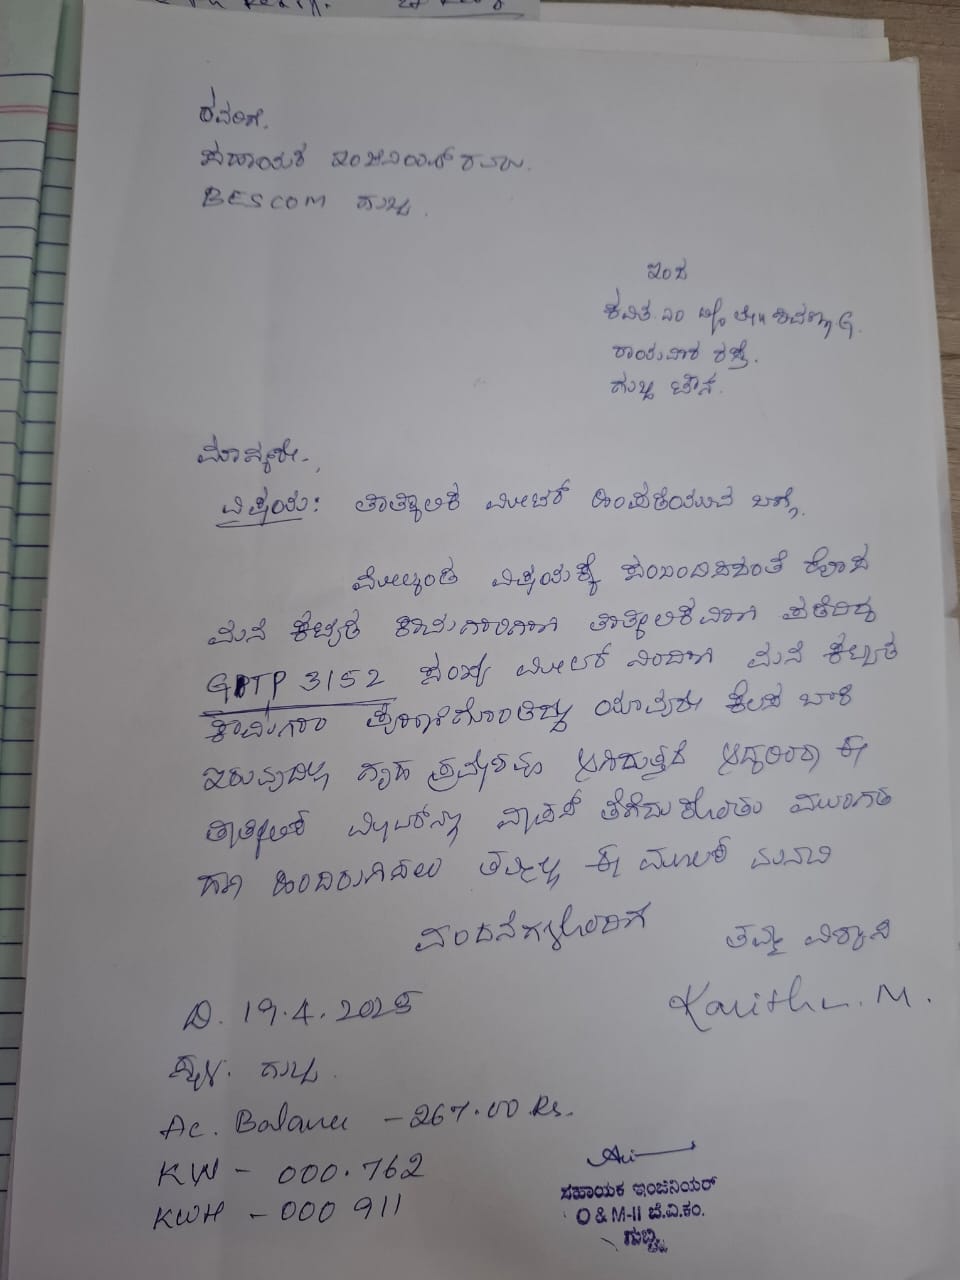 ರವರಿಗೆ.
ಸಹಾಯಕ ಇಂಜಿನಿಯರ್ ರವರು.
BESCOM ಗುಬ್ಬಿ.
ಇಂದ
ಕವಿತ ಎಂ
ರಸ್ತೆ.
ಗುಬ್ಬಿ ಟೌನ್.
ಮಾನ್ಯರೇ.,
ವಿಷಯ: ತಾತ್ಕಾಲಿಕ ಮೀಟರ್ ಹಿಂಪಡೆಯುವ ಬಗ್ಗೆ.
ಮೇಲ್ಕಂಡ ವಿಷಯಕ್ಕೆ ಸಂಬಂದಿಸಿದಂತೆ
ಮನೆ ಕಟ್ಟಡ ಕಾಮಗಾರಿಗಾಗಿ ತಾತ್ಕಾಲಿಕವಾಗಿ ಪಡೆದಿದ್ದ
GBTP 3152 ಸಂಖ್ಯೆ ಮೀಟರ್ ಮನೆ ಕಟ್ಟಡ
ಕಾಮಗಾರಿ ಯಾವುದೇ ಕೆಲಸ ಬಾಕಿ
ಇರುವುದಿಲ್ಲ ಗೃಹ ಪ್ರವೇಶವೂ ಆಗಿರುತ್ತದೆ ಆದ್ದರಿಂದಾ ಈ
ತಾತ್ಕಾಲಿಕ ಮೀಟರ್‌ನ್ನು ವಾಪಸ್ ತೆಗೆದುಕೊಂಡು
ಹಣ ಹಿಂದಿರುಗಿಸಲು ತಮ್ಮಲ್ಲಿ ಈ ಮೂಲಕ ಮನವಿ
ವಂದನೆಗಳೊಂದಿಗೆ
ತಮ್ಮ ವಿಶ್ವಾಸಿ
Kavitha. M.
D. 19.4.2025
ಸ್ಥಳ. ಗುಬ್ಬಿ.
Ac. Balance - 267.00 Rs.
KW - 000.762
KWH - 000 911
ಸಹಾಯಕ ಇಂಜಿನಿಯರ್
O & M-II ಬೆ.ವಿ.ಕಂ.
ಗುಬ್ಬಿ